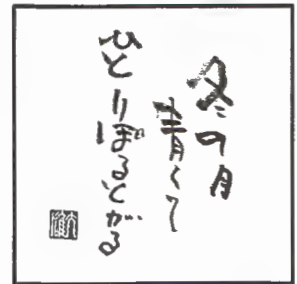 冬の月
青くて
ひとりぼるとがる